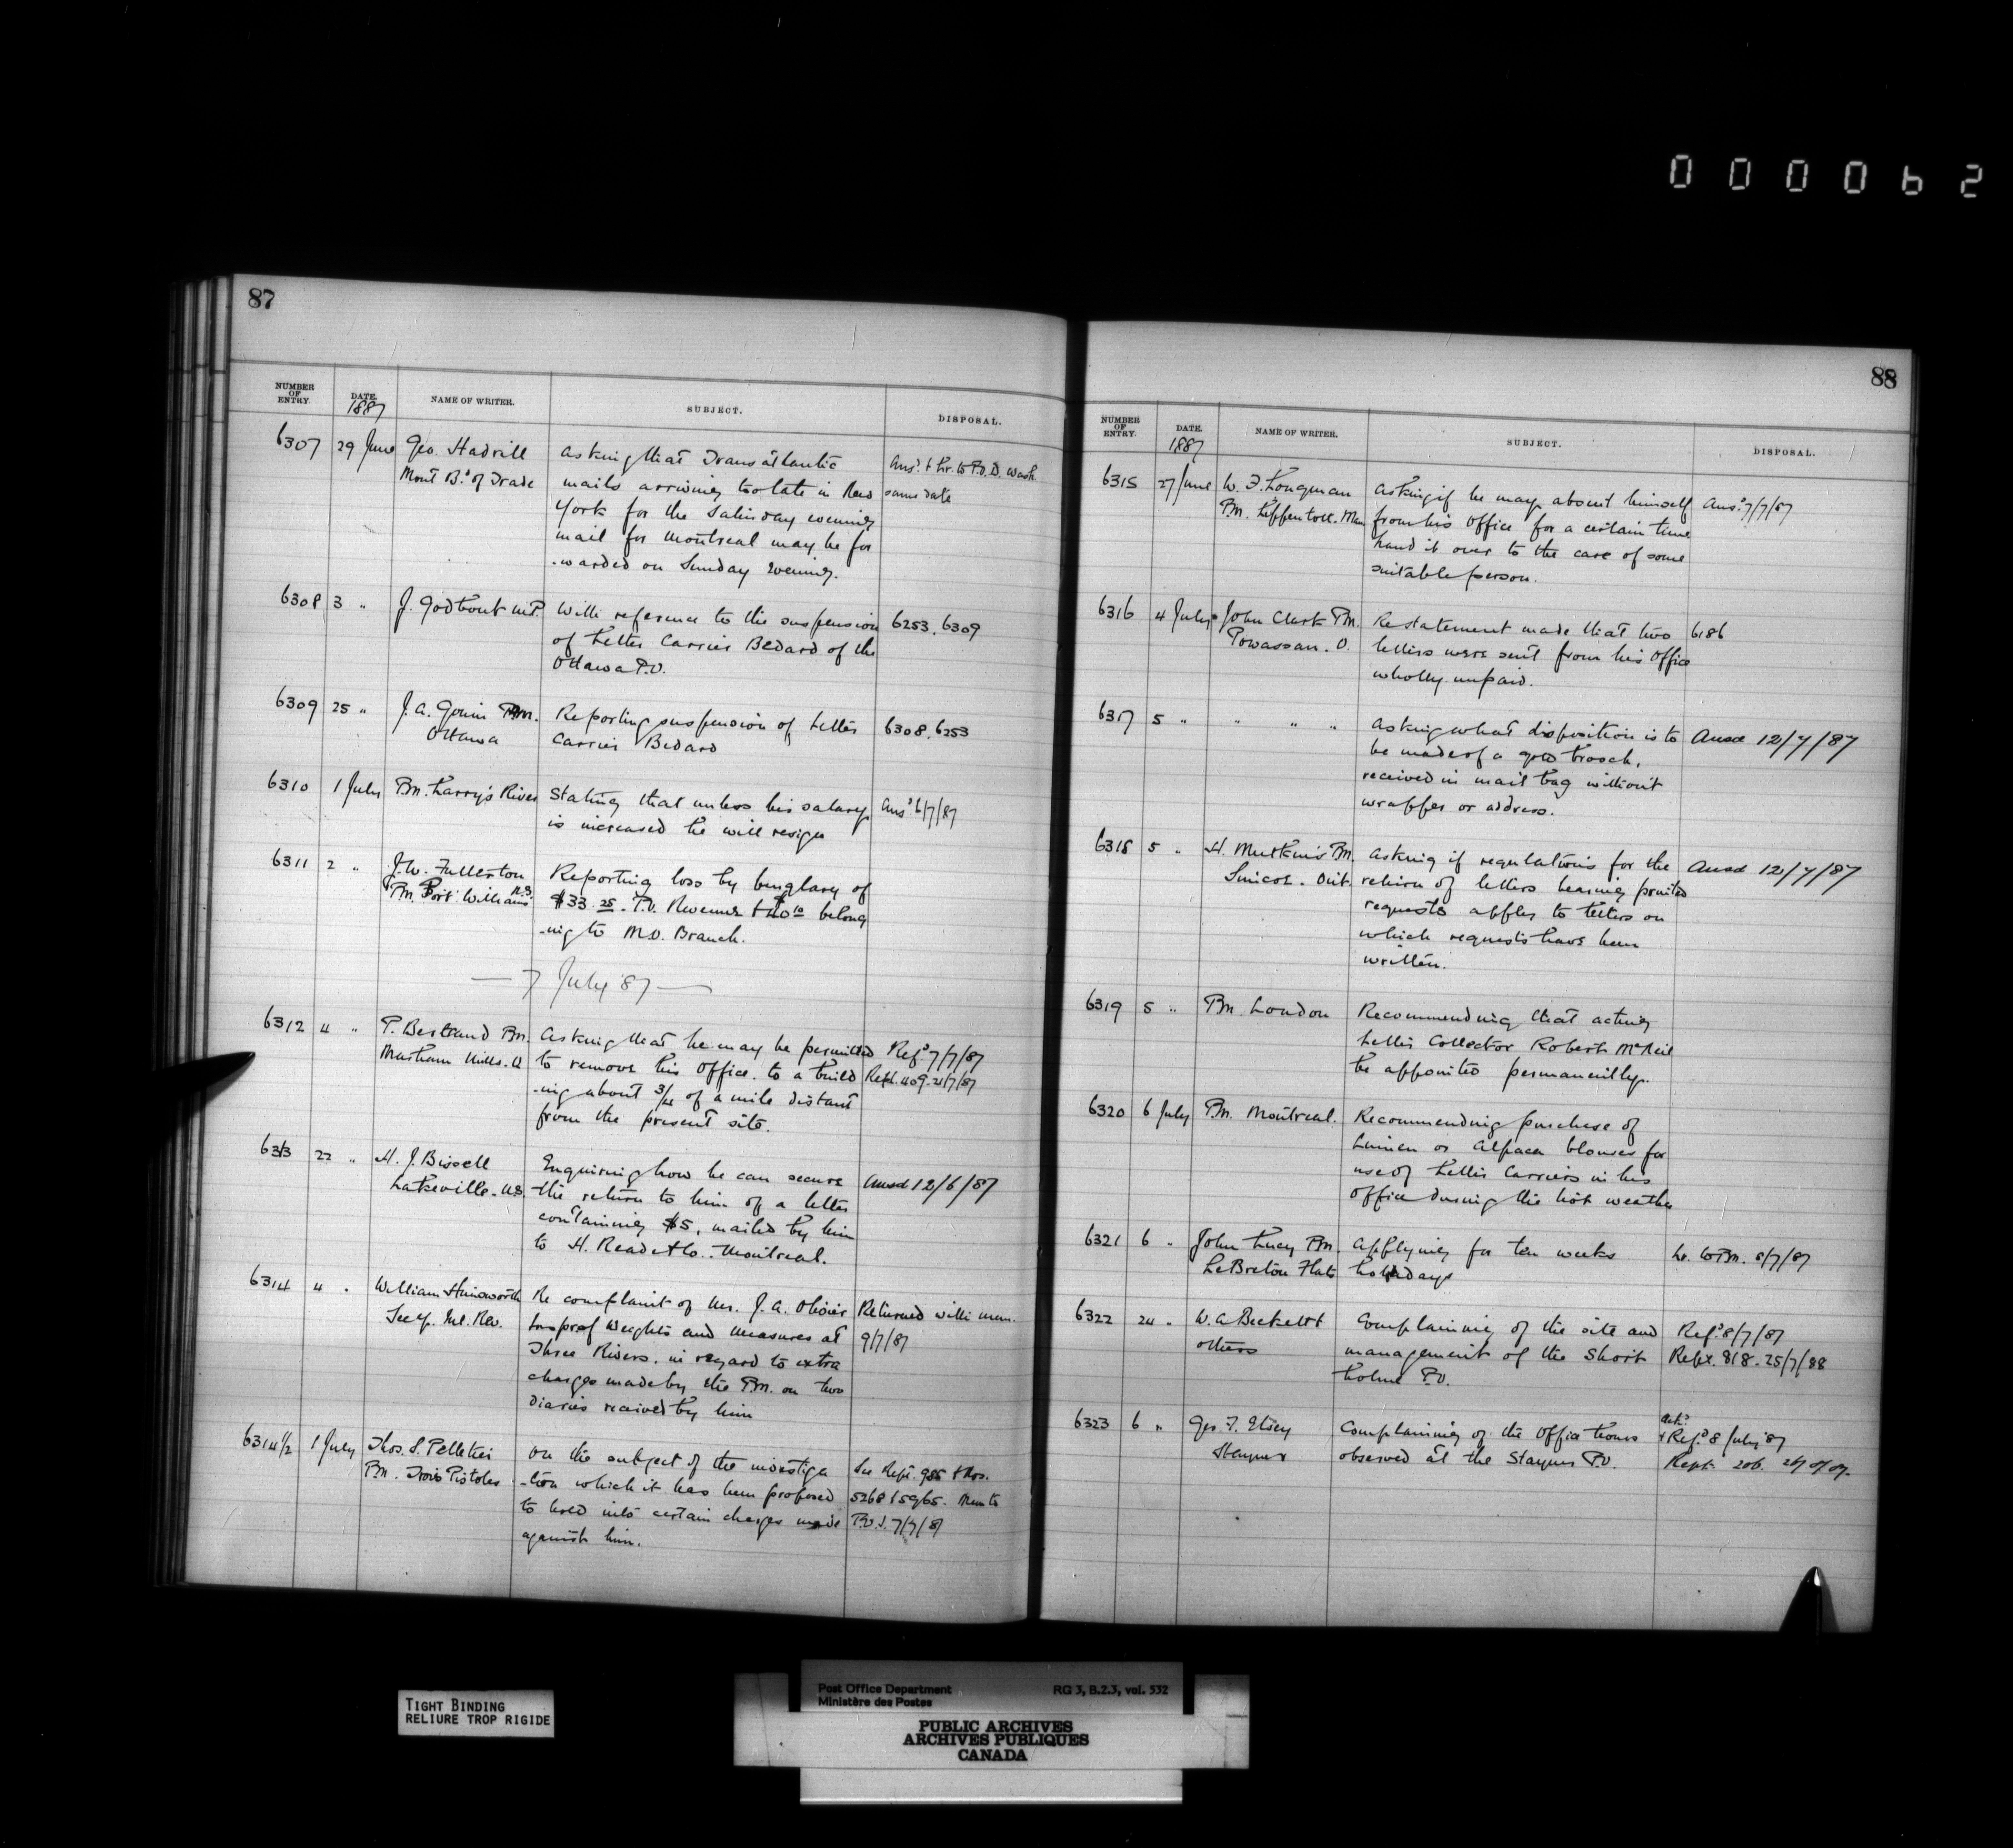 000062
87
NUMBER OF ENTRY. DATE. NAME OF WRITER. SUBJECT. DISPOSAL.
1887
6307 29 June Geo. Hadrill asking that Transatlantic Ansd. & hr. to P.O.D. Wash
Mont Bd. of Trade mails arriving too late in New same date
York for the Saturday evening
mail for Montreal may be for
-warded on Sunday evening.
6308 3 " J. Godbout M.P. With reference to the suspension 6253, 6309
of Letter Carrier Bedard of the
Ottawa P.O.
6309 25 " J. A. Gouin P.M. Reporting suspension of Letter 6308, 6253
Ottawa Carrier Bedard
6310 1 July P.M. Larry's River Stating that unless his salary Ansd. 6/7/87
is increased he will resign
6311 2 " J. W. Fullerton Reporting loss by burglary of
P.M. Port Williams N.S. $33.25. P.O. Revenue & belong
-ing to M.O. Branch.
— 7 July '87 —
6312 4 " P. Bertrand P.M. Asking that he may be permitted Refd. 7/7/87
Masham Mills. Q to remove his Office to a build Rept. 409. 21/7/87
-ing about 3/4 of a mile distant
from the present site.
6313 22 " H. J. Bissell Enquiring how he can secure Ansd 12/6/87
Lakeville - U.S. the return to him of a letter
containing $5, mailed by him
to H. Read & Co. Montreal.
6314 4 " William Himsworth Re complaint of Mr. J. A. Olivier Returned with mem.
Secy. Inl. Rev. Insp. of Weights and Measures at 9/7/87
Three Rivers. in regard to extra
charges made by the P.M. on two
diaries received by him
6314½ 1 July Thos. S. Pelletier On the subject of the investiga See Rept. 955 & Nos.
P.M. Trois Pistoles -tion which it has been proposed 5268 & 5965. Mem to
to hold into certain charges made P.O.I. 7/7/87
against him.
88
NUMBER OF ENTRY. DATE. NAME OF WRITER. SUBJECT. DISPOSAL.
1887
6315 27 June W. F. Longman Asking if he may absent himself Ansd. 7/7/87
P.M. Man from his office for a certain time
hand it over to the care of some
suitable person.
6316 4 July John Clark P.M. Re statement made that two 6186
Powassan. O. letters were sent from his Office
wholly unpaid.
6317 5 " " " " Asking what disposition is to Ansd 12/7/87
be made of a gold brooch,
received in mail bag without
wrapper or address.
6318 5 " H. P.M. Asking if regulations for the Ansd 12/7/87
Simcoe. Ont. return of letters bearing printed
requests applies to letters on
which requests have been
written.
6319 5 " P.M. London Recommending that acting
Letter Collector Robert McNeil
be appointed permanently.
6320 6 July P.M. Montreal. Recommending purchase of
Linnen or Alpaca blouses for
use of Letter Carriers in his
office during the hot weather
6321 6 " John Lucy P.M. Applying for ten weeks hr. to P.M. 8/7/87
LeBreton Flats holidays
6322 24 " W. A. Beckett & Complaining of the site and Refd. 8/7/87
others management of the Short Rept. 818. 25/7/88
holme P.O.
6323 6 " Geo. F. Complaining of the Office hours Ackd. & Refd. 8 July '87
Stayner observed at the Stayner P.O. Rept. 206.
TIGHT BINDING
RELIURE TROP RIGIDE
Post Office Department RG 3, B.2.3, vol. 532
Ministère des Postes
PUBLIC ARCHIVES
ARCHIVES PUBLIQUES
CANADA